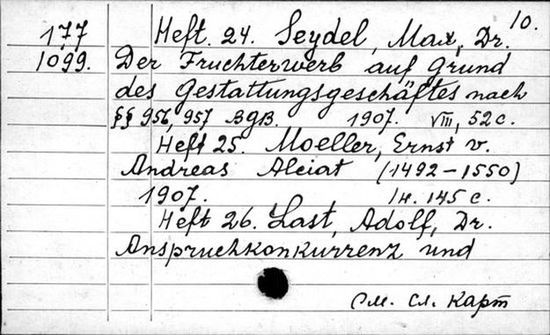 10.
177 Heft. 24. Seydel, Max, Dr.
1099. Der Fruchterwerb auf Grund
des Gestattungsgeschäftes nach
§§ 956, 957 BGB. 1907. VIII, 52 c.
Heft 25. Moeller, Ernst v.
Andreas Alciat (1492-1550)
1907. 145 c.
Heft 26. Last, Adolf, Dr.
Anspruchkonkurrenz und
См. сл. карт